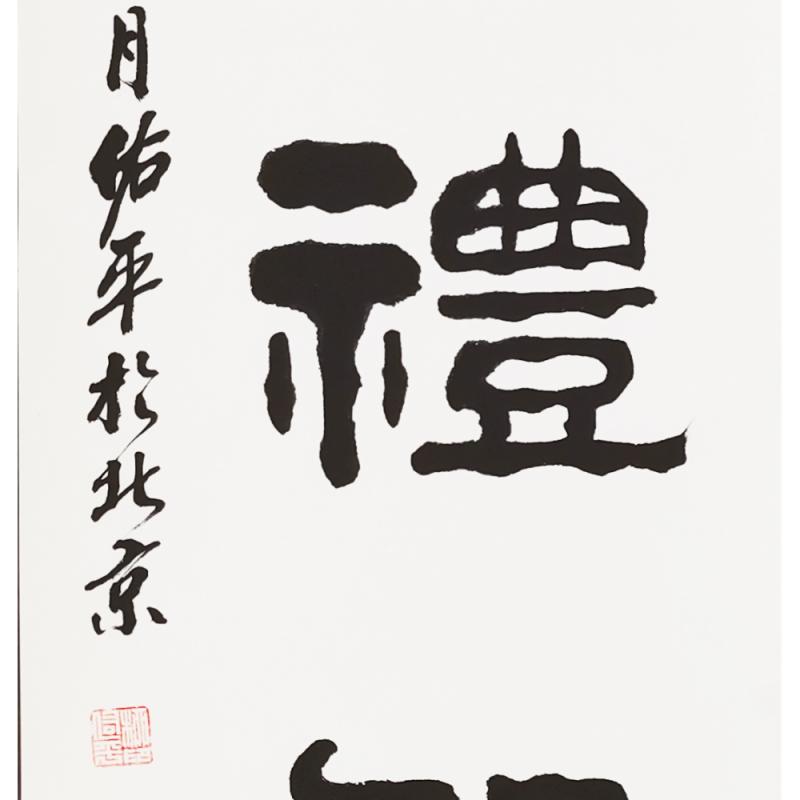 禮
月佑平於北京